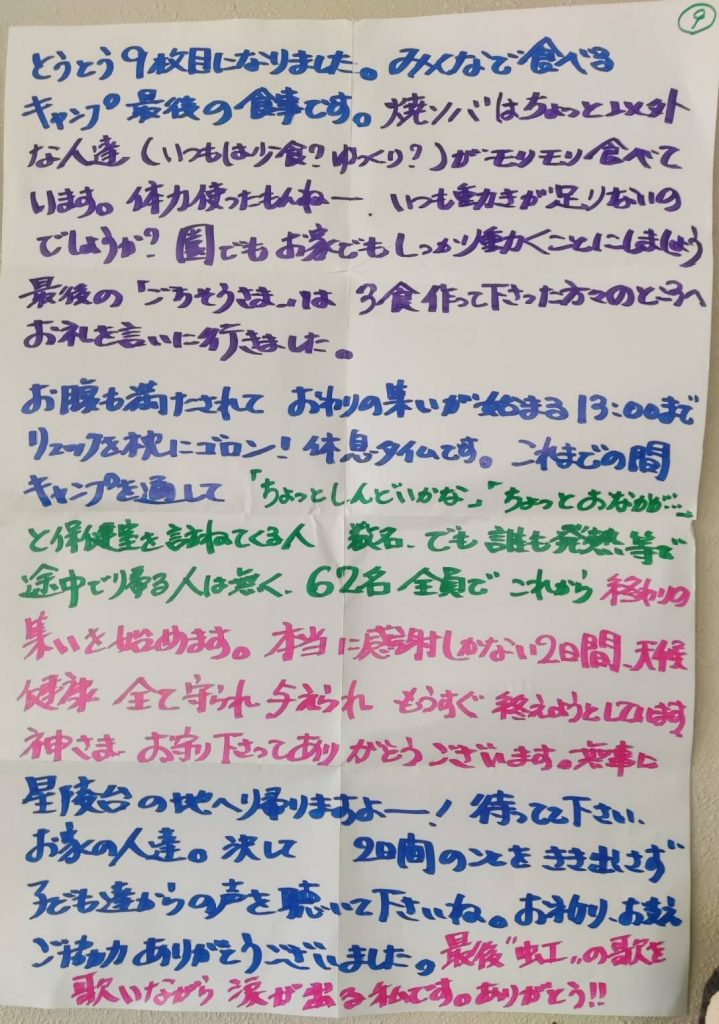 9
とうとう9枚目になりました。みんなで食べる
キャンプ最後の食事です。焼ソバはちょっと以外
な人達(いつもは少食?ゆっくり?)がモリモリ食べて
います。体力使ったもんねー、いつも動きが足りないの
でしょうか?園でもお家でもしっかり動くことにしましょう
最後の「ごちそうさま」は 3食作って下さった方々のところへ
お礼を言いに行きました。
お腹も満たされて おわりの集いが始まる13:00まで
リュックを枕にゴロン!休息タイムです。これまでの間
キャンプを通して「ちょっとしんどいかな」「ちょっとおなかが…」
と保健室を訪ねてくる人 数名、でも誰も発熱等で
途中で帰る人は無く、62名全員で これから 終わりの
集いを始めます。本当に感謝しかない2日間、天候
健康 全て守られ 与えられ もうすぐ 終えようとしています
神さま お守り下さってありがとうございます。無事に
星陵台の地へ帰りますよー!待ってて下さい、
お家の人達。決して 2日間のことをきき出さず
子ども達からの声を聴いて下さいね。お祈り、お支え
ご協力ありがとうございました。最後"虹"の歌を
歌いながら 涙が出る私です。ありがとう!!